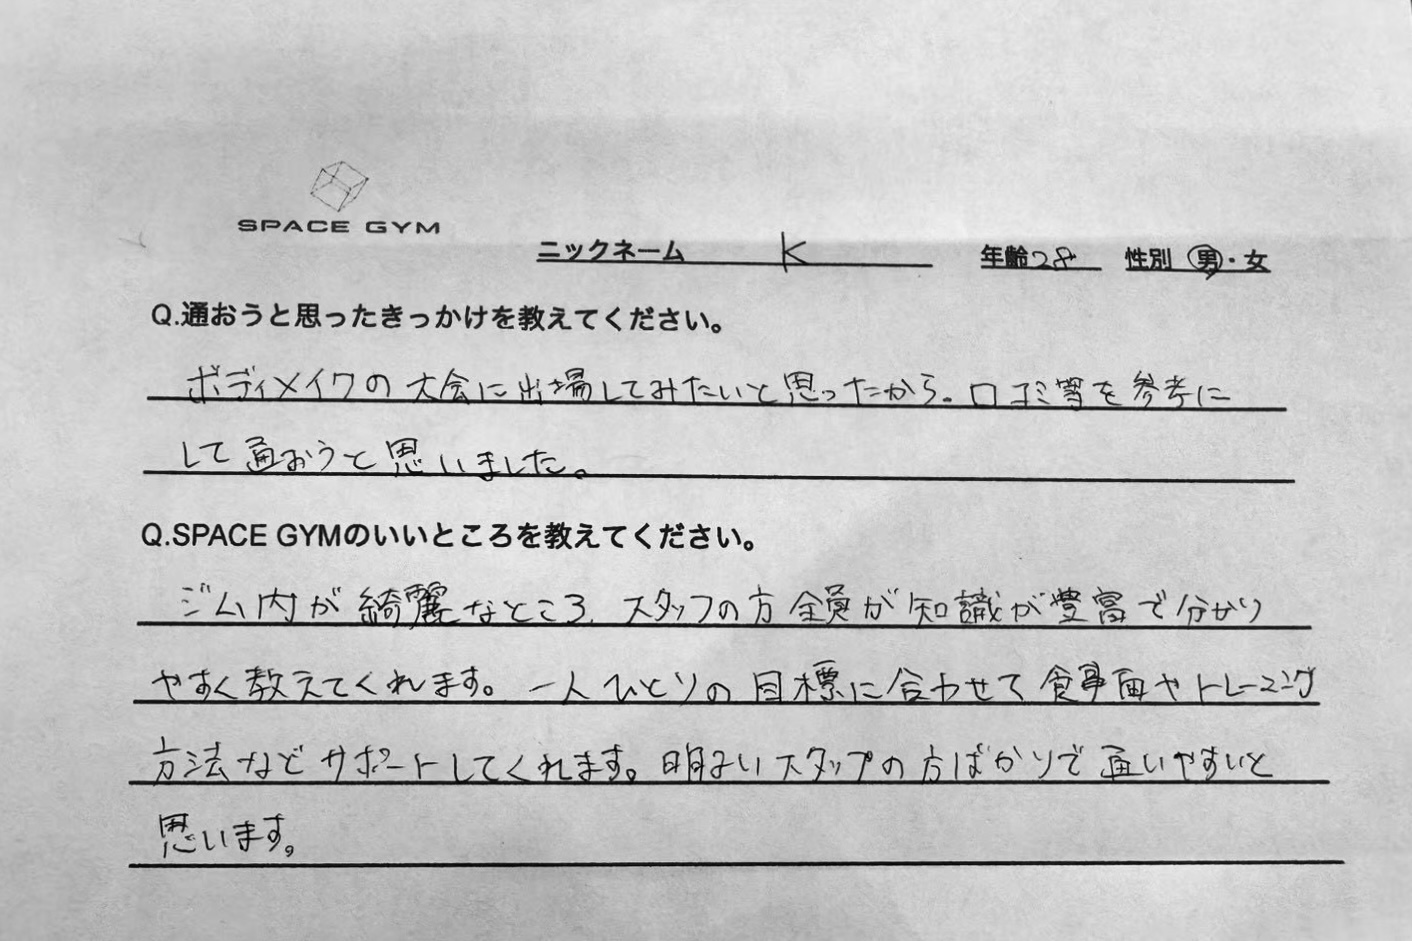 SPACE GYM
ニックネーム K 年齢28 性別 男・女
Q.通おうと思ったきっかけを教えてください。
ボディメイクの大会に出場してみたいと思ったから。口コミ等を参考に
して通おうと思いました。
Q.SPACE GYMのいいところを教えてください。
ジム内が綺麗なところ、スタッフの方全員が知識が豊富で分かり
やすく教えてくれます。一人ひとりの目標に合わせて食事面やトレーニング
方法などサポートしてくれます。明るいスタッフの方ばかりで通いやすいと
思います。